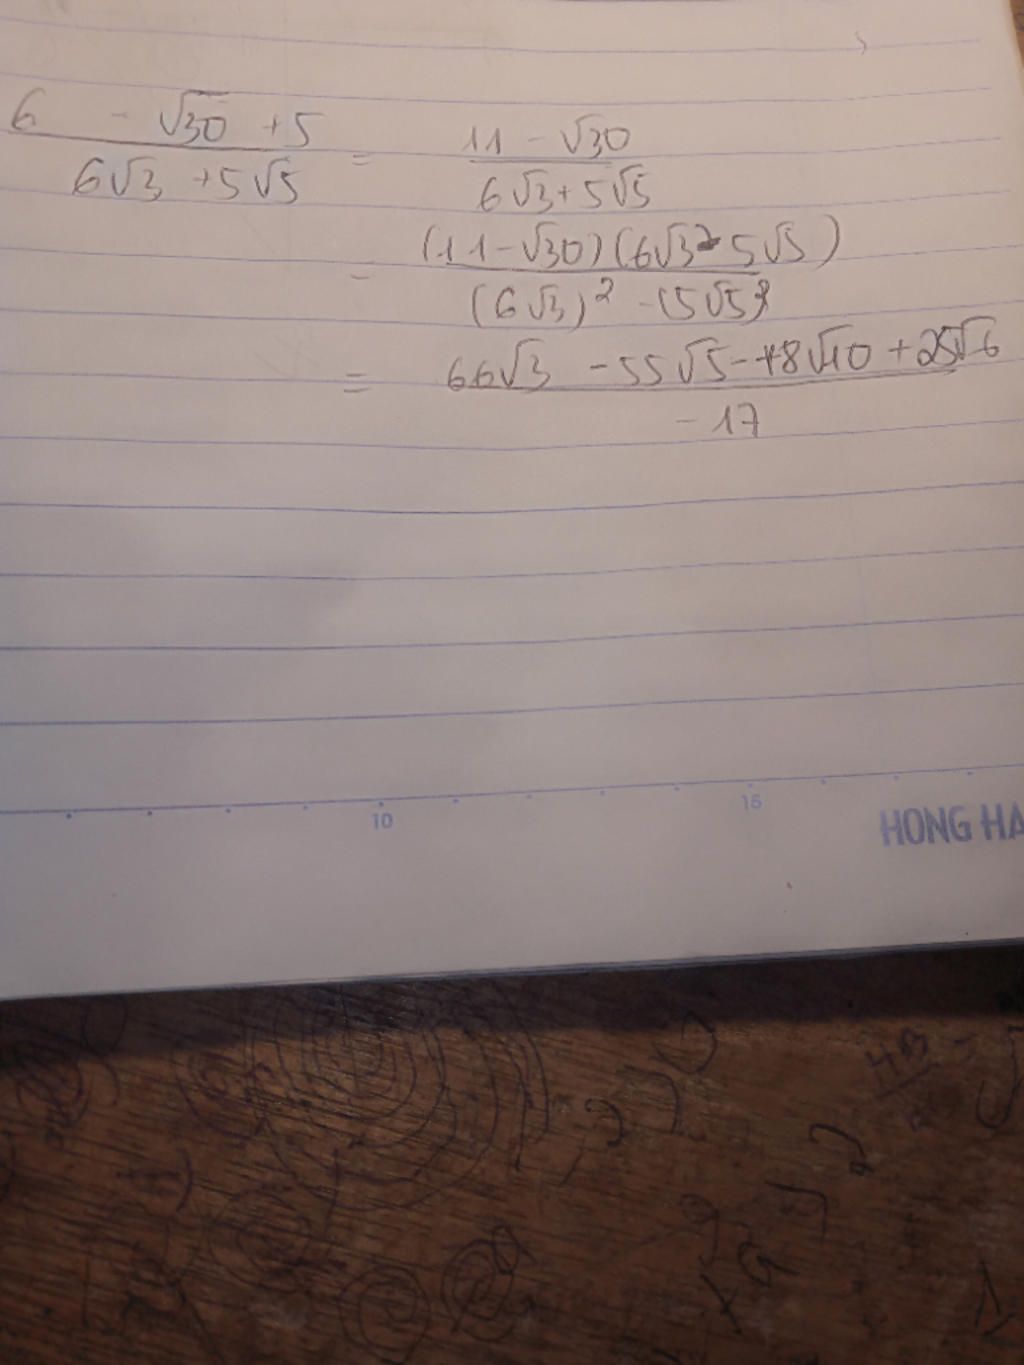 6 - √30 + 5 / 6√3 + 5√5 = 11 - √30 / 6√3 + 5√5
= (11 - √30)(6√3 - 5√5) / (6√3)² - (5√5)²
= 66√3 - 55√5 - 18√10 + 25√6 / -17
10 15
HONG HA